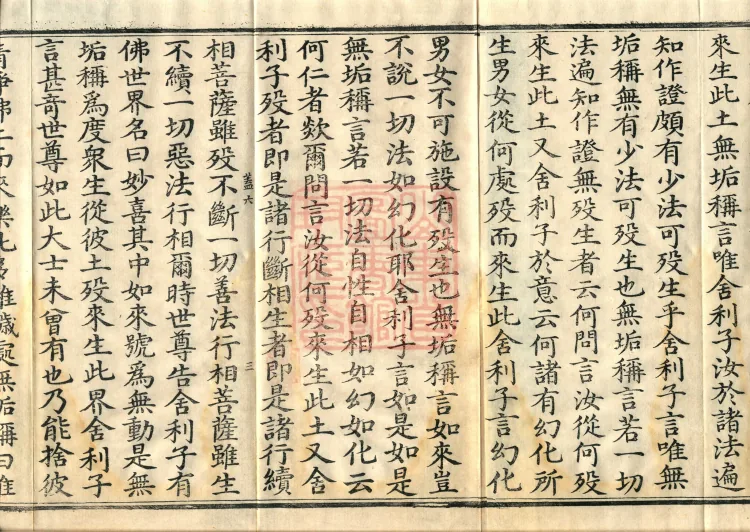 來生此土無垢稱言唯舍利子汝於諸法遍
知作證頗有少法可歿生乎舍利子言唯無
垢稱無有少法可歿生也無垢稱言若一切
法遍知作證無歿生者云何問言汝從何歿
來生此土又舍利子於意云何諸有幻化所
生男女從何處歿而來生此舍利子言幻化
男女不可施設有歿生也無垢稱言如來豈
不說一切法如幻化耶舍利子言如是如是
無垢稱言若一切法自性自相如幻如化云
何仁者欻爾問言汝從何歿來生此土又舍
利子歿者即是諸行斷相生者即是諸行續
蓋六
三
相菩薩雖歿不斷一切善法行相菩薩雖生
不續一切惡法行相爾時世尊告舍利子有
佛世界名曰妙喜其中如來號為無動是無
垢稱為度衆生從彼土歿來生此界舍利子
言甚奇世尊如此大士未曾有也乃能捨彼
清淨佛土而來樂此多雜穢處無垢稱曰唯